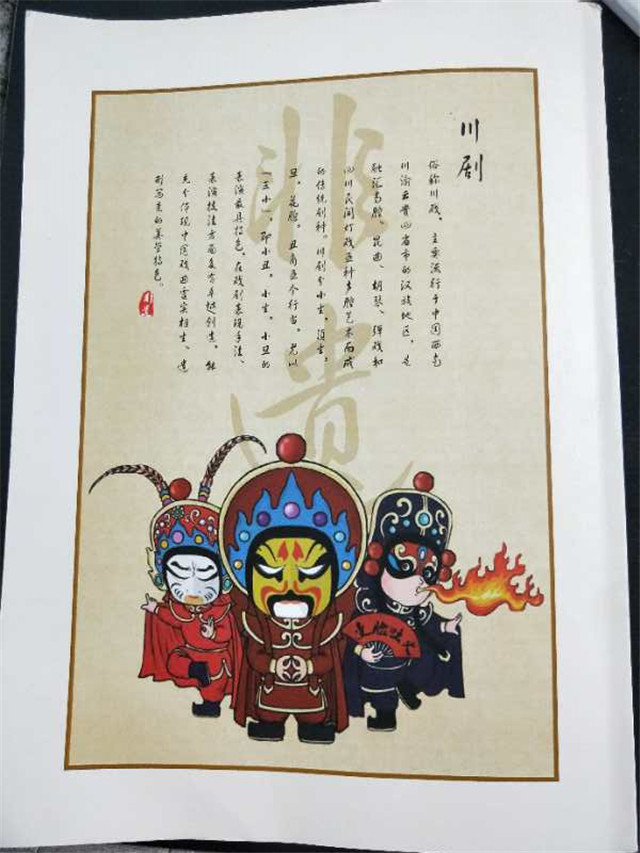 非遗
川剧
俗称川戏，主要流行于中国西南
川渝云贵四省市的汉族地区，是
融汇高腔、昆曲、胡琴、弹戏和
四川民间灯戏五种声腔艺术而成
的传统剧种。川剧分小生、须生、
旦、花脸、丑角五个行当，尤以
“三小”，即小丑、小生、小丑的
表演最具特色，在戏剧表现手法、
表演技法方面多有卓越创造，能
充分体现中国戏曲虚实相生、遗
形写意的美学特色。
变脸吹火